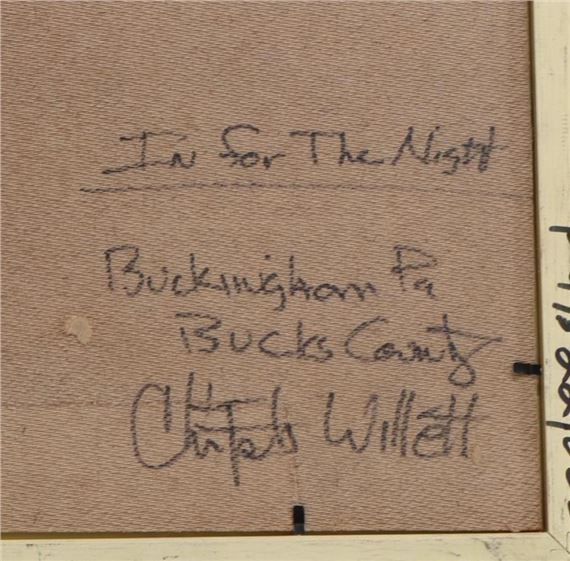 In for The Night
Buckingham Pa
Bucks County
Willett